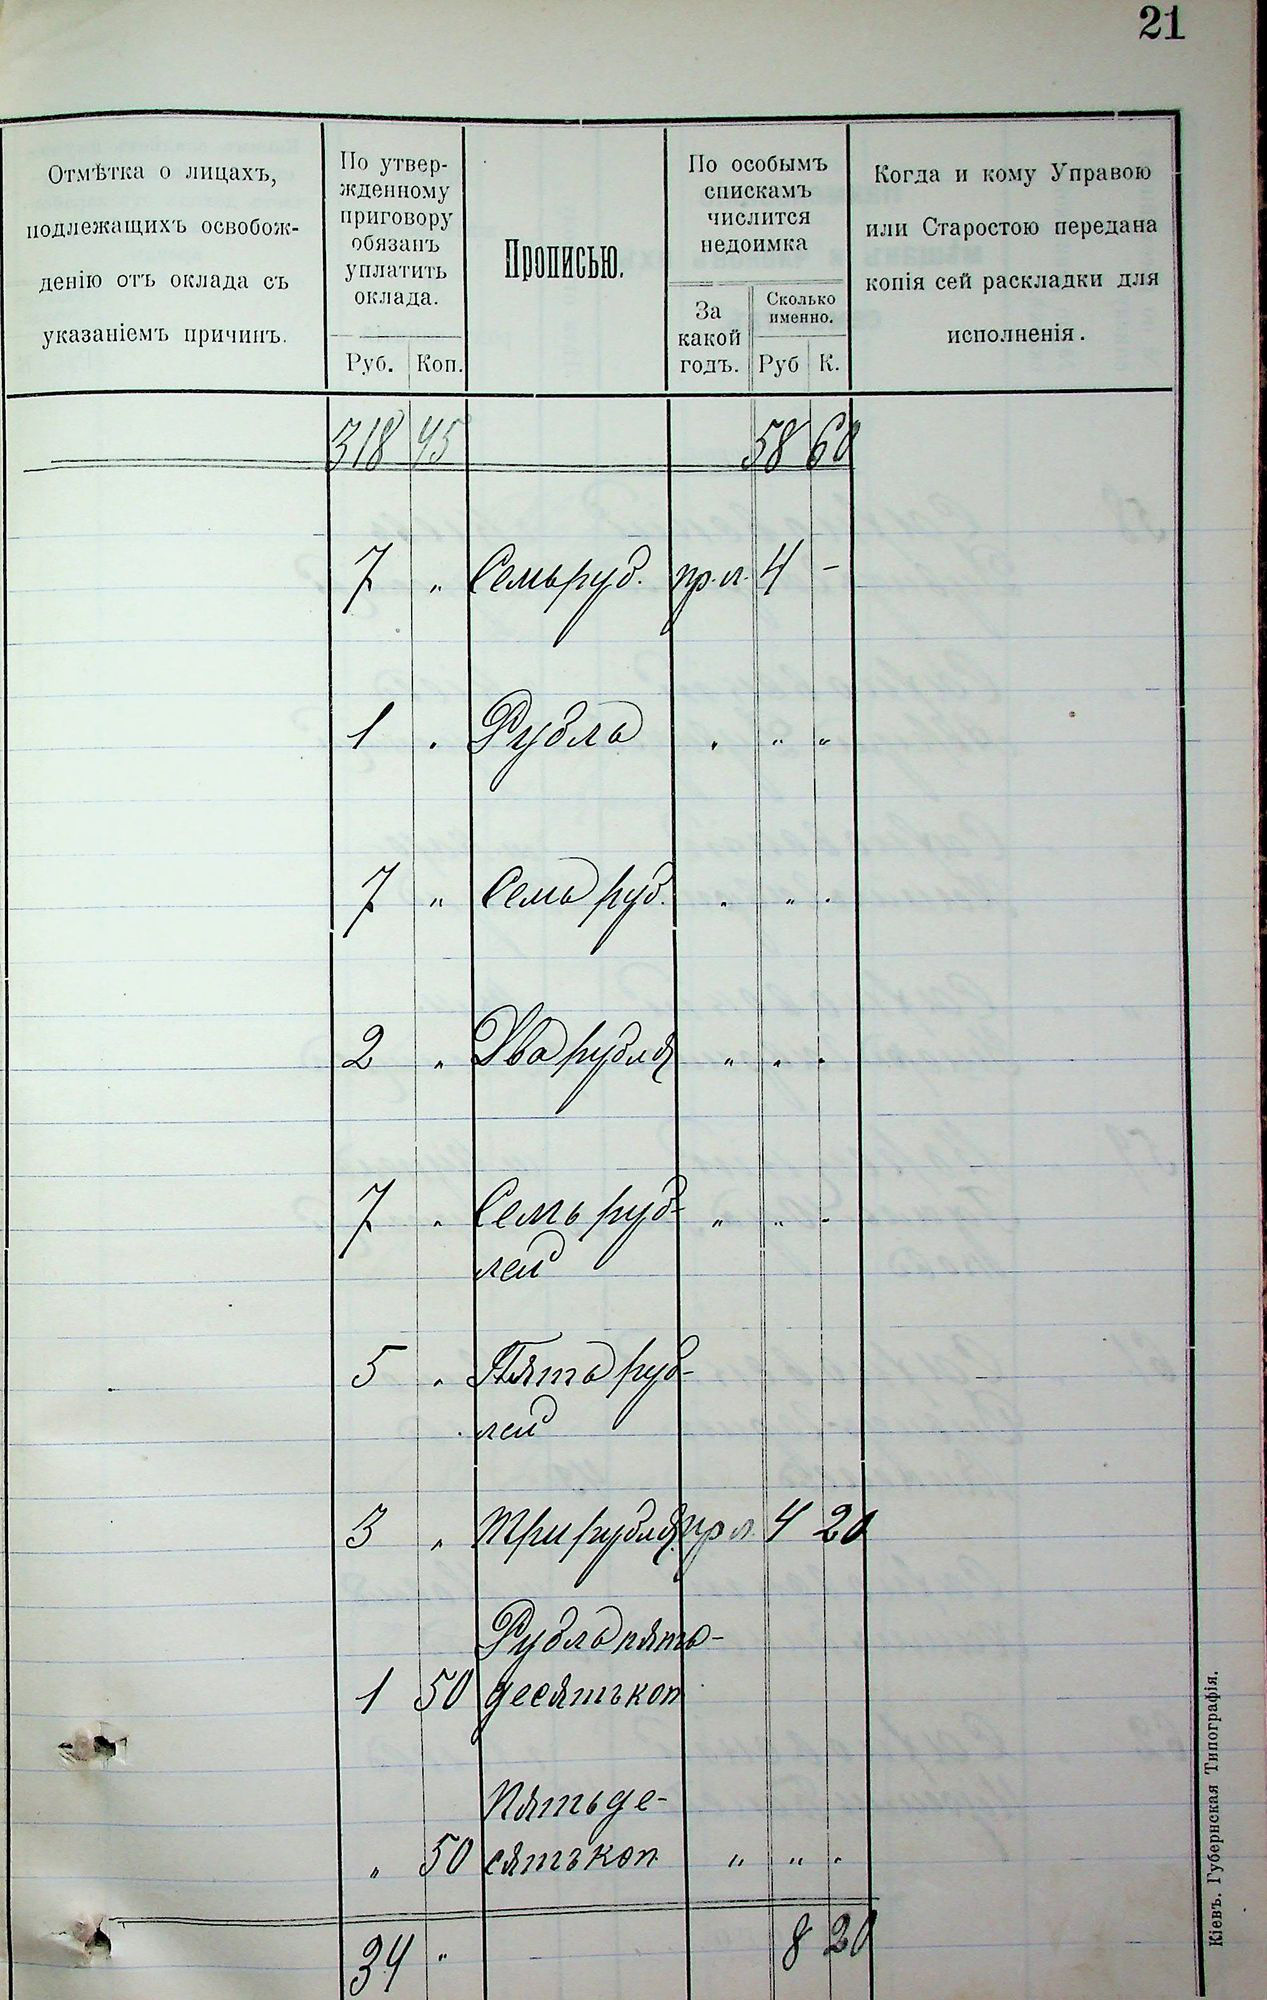 21
Отмѣтка о лицахъ,
подлежащихъ освобож-
денію отъ оклада съ
указаніемъ причинъ.
По утвер-
жденному
приговору
обязанъ
уплатить
оклада.
Руб. Коп.
Прописью.
По особымъ
спискамъ
числится
недоимка
За
какой
годъ.
Сколько
именно.
Руб К.
Когда и кому Управою
или Старостою передана
копія сей раскладки для
исполненія.
318 45 58 60
7 " Семь руб. пр. л. 4 -
1 " Рубль " " "
7 " Семь руб. " " "
2 " Два рубля " " "
7 " Семь руб- " " "
лей
5 " Пять руб-
лей
3 " Три рубля пр л. 4 20
Рубль пять-
1 50 десятъ коп
Пятьде-
" 50 сятъ коп " " "
34 " 8 20
Кіевъ. Губернская Типографія.